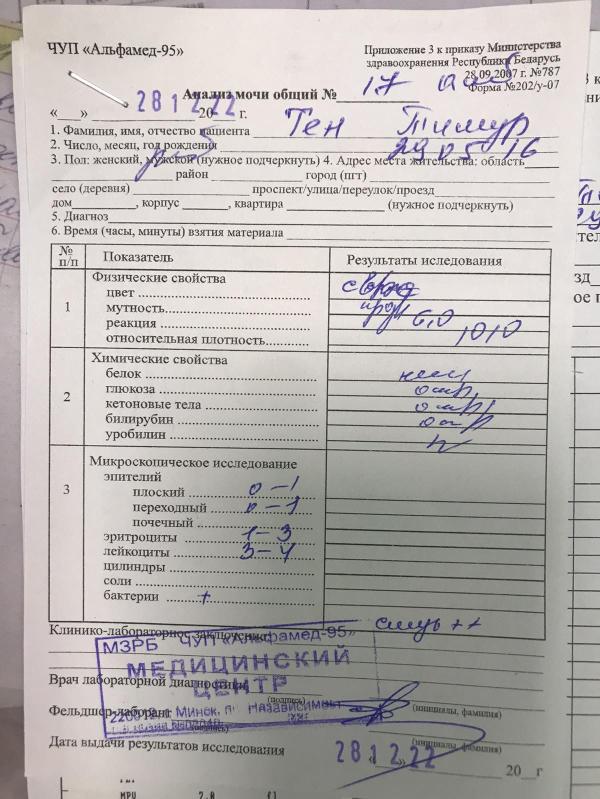 ЧУП «Альфамед-95»
Приложение 3 к приказу Министерства
здравоохранения Республики Беларусь
28.09.2007 г. №787
Форма №202/у-07
Анализ мочи общий № 17
«___» 28 12 22 20 г.
1. Фамилия, имя, отчество пациента Тен Тимур
2. Число, месяц, год рождения 29 05 16
3. Пол: женский, мужской (нужное подчеркнуть) 4. Адрес места жительства: область
район город (пгт)
село (деревня) проспект/улица/переулок/проезд
дом , корпус , квартира (нужное подчеркнуть)
5. Диагноз
6. Время (часы, минуты) взятия материала
№ п/п Показатель Результаты иследования
1 Физические свойства
цвет
мутность
реакция 6,0
относительная плотность 1010
2 Химические свойства
белок
глюкоза отр
кетоновые тела отр
билирубин отр
уробилин
3 Микроскопическое исследование
эпителий
плоский 0-1
переходный 0-1
почечный
эритроциты 1-3
лейкоциты 3-4
цилиндры
соли
бактерии +
Клинико-лабораторное заключение слизь ++
МЗРБ ЧУП «Альфамед-95»
МЕДИЦИНСКИЙ
ЦЕНТР
Врач лабораторной диагностики
(подпись) (инициалы, фамилия)
Фельдшер-лаборант
г. Минск, Независимости
(инициалы, фамилия)
Дата выдачи результатов исследования 28 12 22 20 г